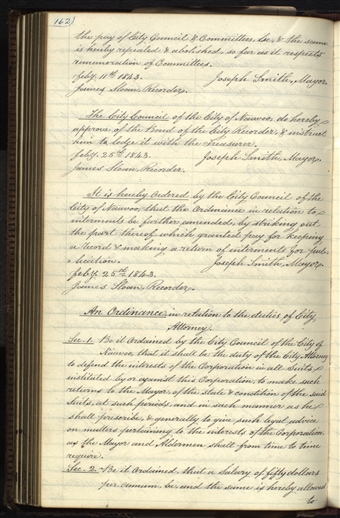 162
the pay of City Council & Committees, &c, & the same
is hereby repealed & abolished, so far as it respects
remuneration of Committees.
feby. 11th 1843. Joseph Smith, Mayor
James Sloan, Recorder.
The City Council of the City of Nauvoo, do hereby
approve of the Bond of the City Recorder, & instruct
him to lodge it with the Treasurer.
feby. 25th 1843. Joseph Smith, Mayor.
James Sloan, Recorder.
It is hereby Ordered by the City Council of the
City of Nauvoo, that the Ordinance in relation to
interments be further amended, by striking out
the part thereof which granted pay for keeping
a record & making a return of interments for pub-
lication. Joseph Smith, Mayor.
feby. 25th 1843.
James Sloan, Recorder.
An Ordinance, in relation to the duties of City
Attorney.
Sec. 1. Be it Ordained by the City Council of the City of
Nauvoo, that it shall be the duty of the City Attorney
to defend the interests of the Corporation in all Suits
instituted by or against this Corporation, to make such
returns to the Mayor, of the state & condition of the said
Suits, at such periods, and in such manner as he
shall prescribe, & generally to give such legal advice
on matters pertaining to the interests of the Corporation
as the Mayor and Aldermen shall from time to time
require.
Sec. 2. Be it Ordained, that a Salary of fifty dollars
per annum, be, and the same is hereby allowed
to